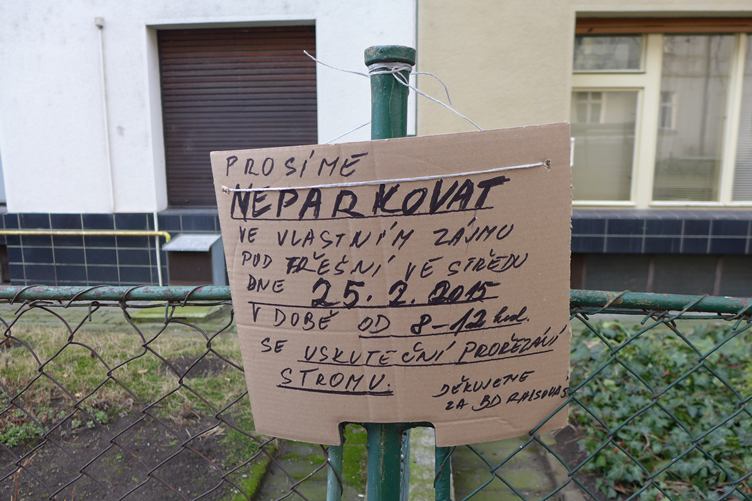 PROSÍME
NEPARKOVAT
VE VLASTNÍM ZÁJMU
POD TŘEŠNÍ VE STŘEDU
DNE 25. 2. 2015
V DOBĚ OD 8-12 hod.
SE USKUTEČNÍ PROŘEZÁNÍ
STROMU.
DĚKUJEME
ZA BD